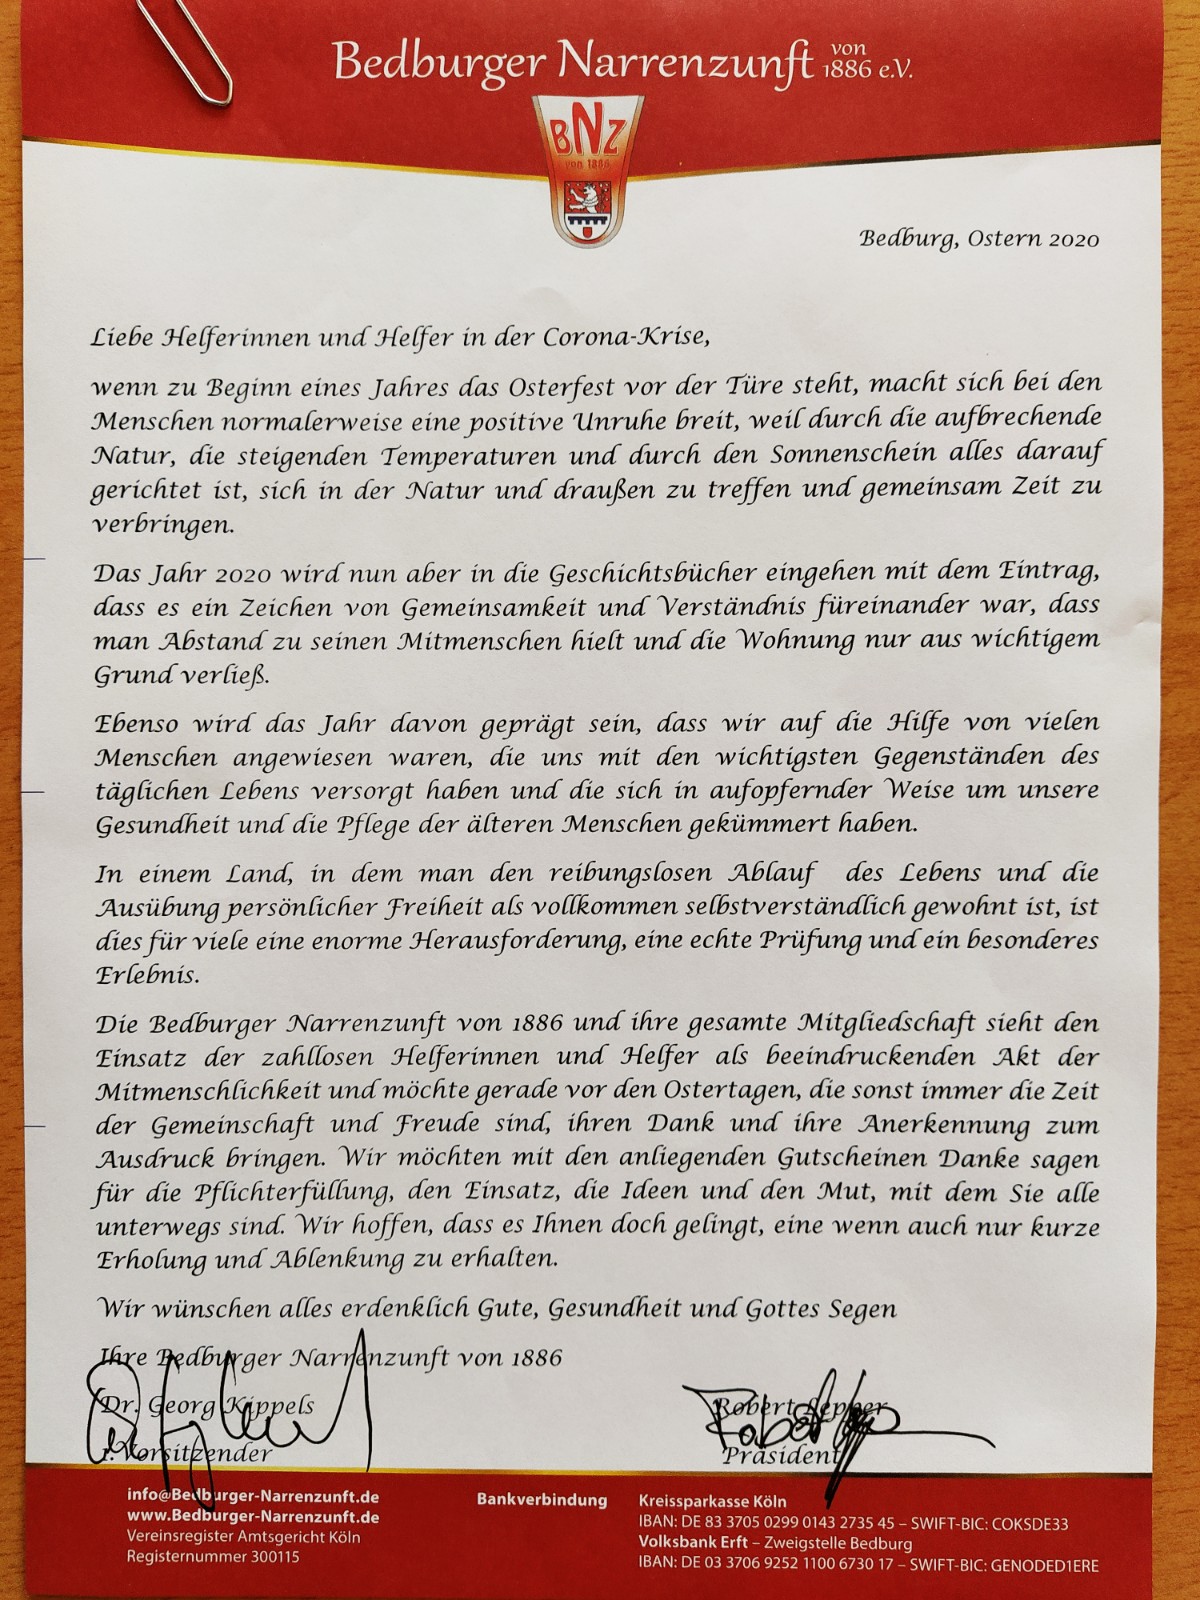 Bedburger Narrenzunft von 1886 e.V.
BNZ
von 1886
Bedburg, Ostern 2020
Liebe Helferinnen und Helfer in der Corona-Krise,
wenn zu Beginn eines Jahres das Osterfest vor der Türe steht, macht sich bei den
Menschen normalerweise eine positive Unruhe breit, weil durch die aufbrechende
Natur, die steigenden Temperaturen und durch den Sonnenschein alles darauf
gerichtet ist, sich in der Natur und draußen zu treffen und gemeinsam Zeit zu
verbringen.
Das Jahr 2020 wird nun aber in die Geschichtsbücher eingehen mit dem Eintrag,
dass es ein Zeichen von Gemeinsamkeit und Verständnis füreinander war, dass
man Abstand zu seinen Mitmenschen hielt und die Wohnung nur aus wichtigem
Grund verließ.
Ebenso wird das Jahr davon geprägt sein, dass wir auf die Hilfe von vielen
Menschen angewiesen waren, die uns mit den wichtigsten Gegenständen des
täglichen Lebens versorgt haben und die sich in aufopfernder Weise um unsere
Gesundheit und die Pflege der älteren Menschen gekümmert haben.
In einem Land, in dem man den reibungslosen Ablauf des Lebens und die
Ausübung persönlicher Freiheit als vollkommen selbstverständlich gewohnt ist, ist
dies für viele eine enorme Herausforderung, eine echte Prüfung und ein besonderes
Erlebnis.
Die Bedburger Narrenzunft von 1886 und ihre gesamte Mitgliedschaft sieht den
Einsatz der zahllosen Helferinnen und Helfer als beeindruckenden Akt der
Mitmenschlichkeit und möchte gerade vor den Ostertagen, die sonst immer die Zeit
der Gemeinschaft und Freude sind, ihren Dank und ihre Anerkennung zum
Ausdruck bringen. Wir möchten mit den anliegenden Gutscheinen Danke sagen
für die Pflichterfüllung, den Einsatz, die Ideen und den Mut, mit dem Sie alle
unterwegs sind. Wir hoffen, dass es Ihnen doch gelingt, eine wenn auch nur kurze
Erholung und Ablenkung zu erhalten.
Wir wünschen alles erdenklich Gute, Gesundheit und Gottes Segen
Ihre Bedburger Narrenzunft von 1886
Dr. Georg Kippels Robert Lepper
1. Vorsitzender Präsident
info@Bedburger-Narrenzunft.de
www.Bedburger-Narrenzunft.de
Vereinsregister Amtsgericht Köln
Registernummer 300115
Bankverbindung
Kreissparkasse Köln
IBAN: DE 83 3705 0299 0143 2735 45 – SWIFT-BIC: COKSDE33
Volksbank Erft – Zweigstelle Bedburg
IBAN: DE 03 3706 9252 1100 6730 17 – SWIFT-BIC: GENODED1ERE